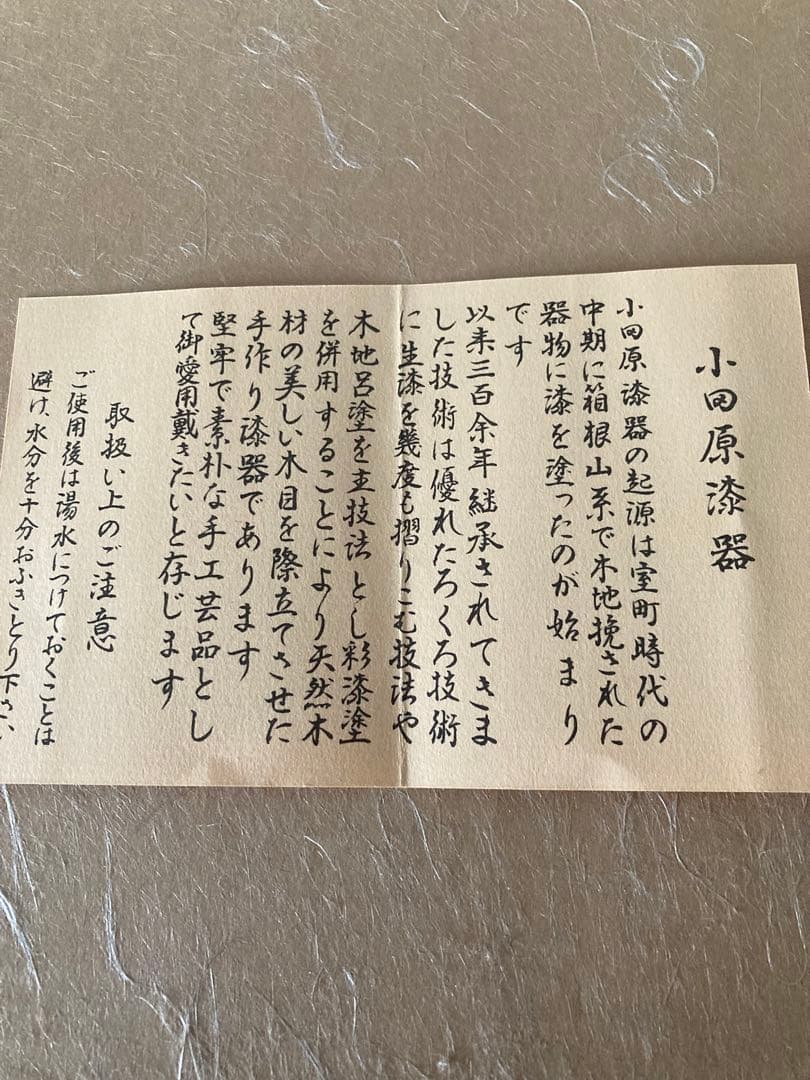 小田原漆器
小田原漆器の起源は室町時代の
中期に箱根山系で木地挽された
器物に漆を塗ったのが始まり
です
以来三百余年継承されてきま
した技術は優れたろくろ技術
に生漆を幾度も摺りこむ技法や
木地呂塗を主技法とし彩漆塗
を併用することにより天然木
材の美しい木目を際立てさせた
手作り漆器であります
堅牢で素朴な手工芸品とし
て御愛用戴きたいと存じます
取扱い上のご注意
ご使用後は湯水につけておくことは
避け、水分を十分おふきとり下さい